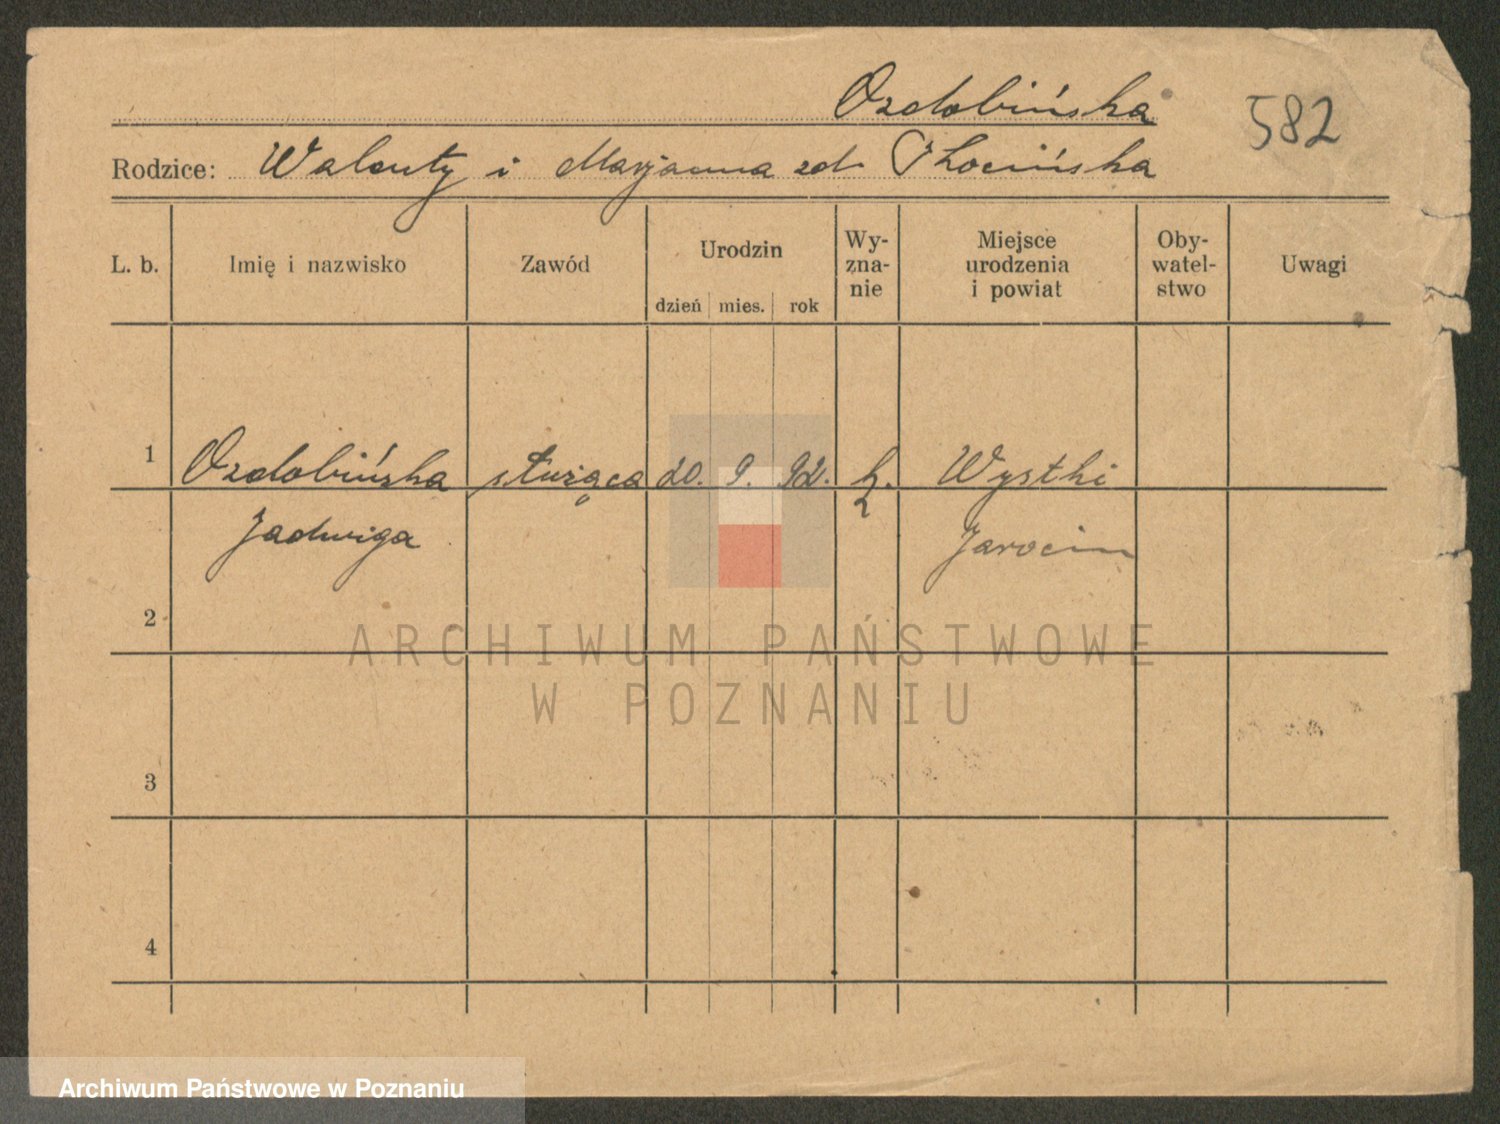 Ozdobińska
582
Rodzice: Walenty i Marjanna zd.
L. b. Imię i nazwisko Zawód Urodzin dzień mies. rok Wy-
zna-
nie Miejsce
urodzenia
i powiat Oby-
watel-
stwo Uwagi
1 Ozdobińska służąca 20. 9. 92. k. Wystki
Jadwiga Jarocin
2
3
4
ARCHIWUM PAŃSTWOWE
W POZNANIU
Archiwum Państwowe w Poznaniu